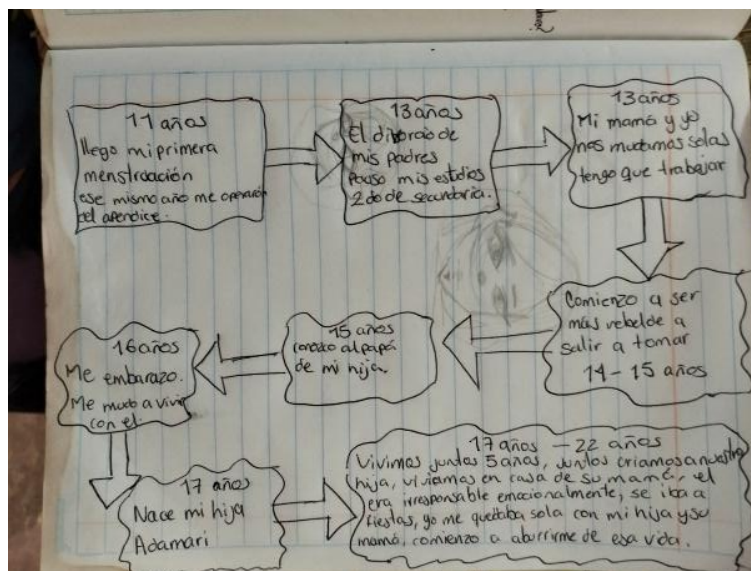 11 años
llego mi primera
menstruación
ese mismo año me operaron
del apendice.
13 años
El divorcio de
mis padres
pauso mis estudios
2do de secundaria.
13 años
Mi mamá y yo
nos mudamos solas
tengo que trabajar
Comienzo a ser
más rebelde a
salir a tomar
14-15 años
15 años
conozco al papá
de mi hija.
16 años
Me embarazo.
Me mudo a vivir
con el.
17 años
Nace mi hija
Adamari
17 años - 22 años
Vivimos juntos 5 años, juntos criamos a nuestra
hija, viviamos en casa de su mamá, el
era irresponsable emocionalmente, se iba a
fiestas, yo me quedaba sola con mi hija y su
mamá, comienzo a aburrirme de esa vida.